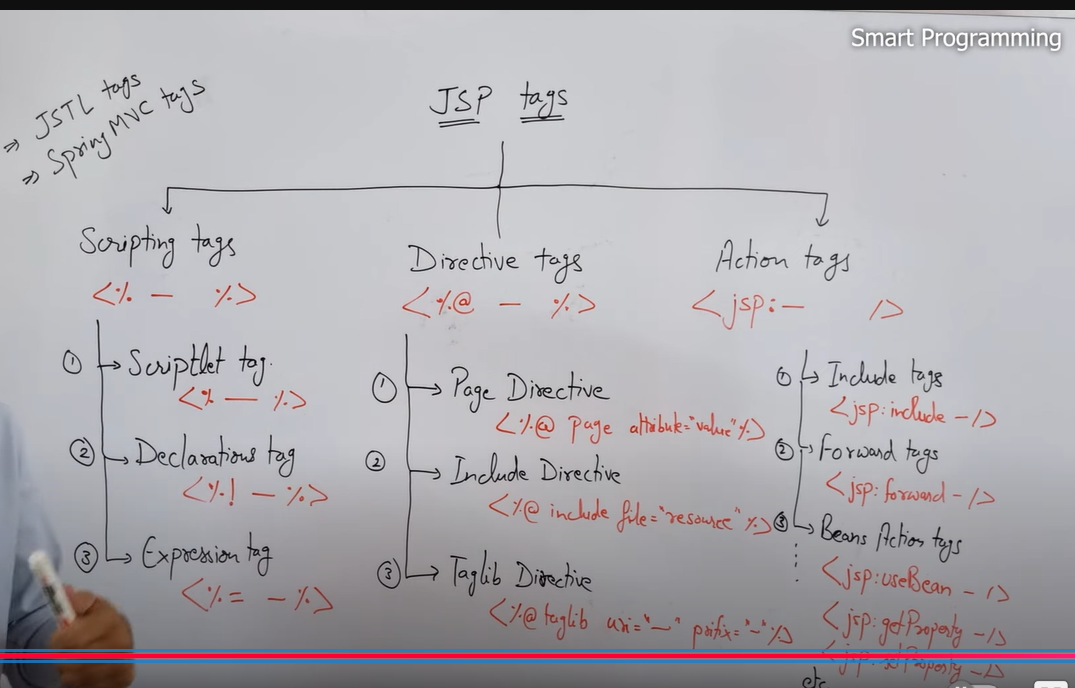 Smart Programming
⇒ JSTL tags
⇒ Spring MVC tags
JSP tags
Scripting tags
<% — %>
① Scriptlet tag
<% — %>
② Declarations tag
<%! — %>
③ Expression tag
<%= — %>
Directive tags
<%@ — %>
① Page Directive
<%@ page attribute="value"%>
② Include Directive
<%@ include file="resource" %>
③ Taglib Directive
<%@ taglib uri="—" prefix="-"%>
Action tags
<jsp:— />
① Include tags
<jsp:include - />
② Forward tags
<jsp:forward - />
③ Beans Action tags
<jsp:useBean - />
<jsp:getProperty - />
<jsp:setProperty - />
etc